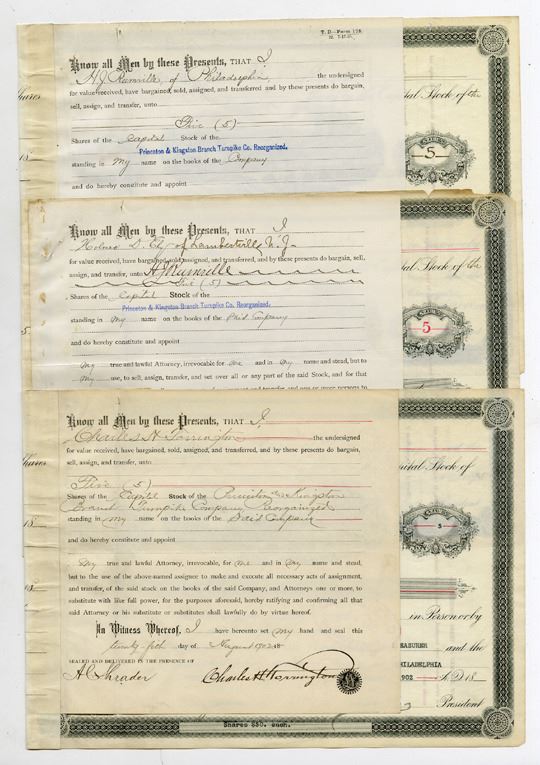 T. D.-Form 178.
Know all Men by these Presents, THAT I
H. J. Rumrille of Philadelphia, the undersigned
for value received, have bargained, sold, assigned, and transferred and by these presents do bargain,
sell, assign, and transfer, unto
Five (5)
Shares of the Capital Stock of the
Princeton & Kingston Branch Turnpike Co. Reorganized.
standing in my name on the books of the Company
and do hereby constitute and appoint
ital Stock of the
5
Know all Men by these Presents, THAT I
Holmes D. Ely of Lambertville N.J.
for value received, have bargained, sold, assigned, and transferred and by these presents do bargain, sell,
assign, and transfer, unto H J Rumrille
Five (5)
Shares of the Capital Stock of the
Princeton & Kingston Branch Turnpike Co. Reorganized.
standing in my name on the books of the Company
and do hereby constitute and appoint
my true and lawful Attorney, irrevocable for me and in my name and stead, but to
my use, to sell, assign, transfer, and set over all or any part of the said Stock, and for that
ital Stock of the
5
Know all Men by these Presents, THAT I
Charles H. Torrington the undersigned
for value received, have bargained, sold, assigned, and transferred, and by these presents do bargain,
sell, assign, and transfer, unto
Five (5)
Shares of the Capital Stock of the Princeton and Kingston
Branch Turnpike Company Reorganized
standing in my name on the books of the Said Company
and do hereby constitute and appoint
My true and lawful Attorney, irrevocable, for me and in my name and stead,
but to the use of the above-named assignee to make and execute all necessary acts of assignment,
and transfer, of the said stock on the books of the said Company, and Attorneys one or more, to
substitute with like full power, for the purposes aforesaid, hereby ratifying and confirming all that
said Attorney or his substitute or substitutes shall lawfully do by virtue hereof.
In Witness Whereof, I have hereunto set my hand and seal this
twenty fifth day of August 1902
SEALED AND DELIVERED IN THE PRESENCE OF
A C Shrader Charles H Torrington
ital Stock of
5
in Person or by
EASURER and the
HILADELPHIA
902 A.D. 18
President
Shares $50. each.